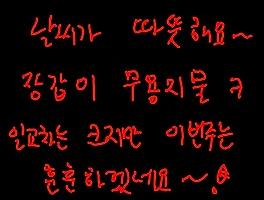 날씨가 따뜻해요~
장갑이 무용지물 ㅋ
일교차는 크지만 이번주는
훈훈하겠네요~!